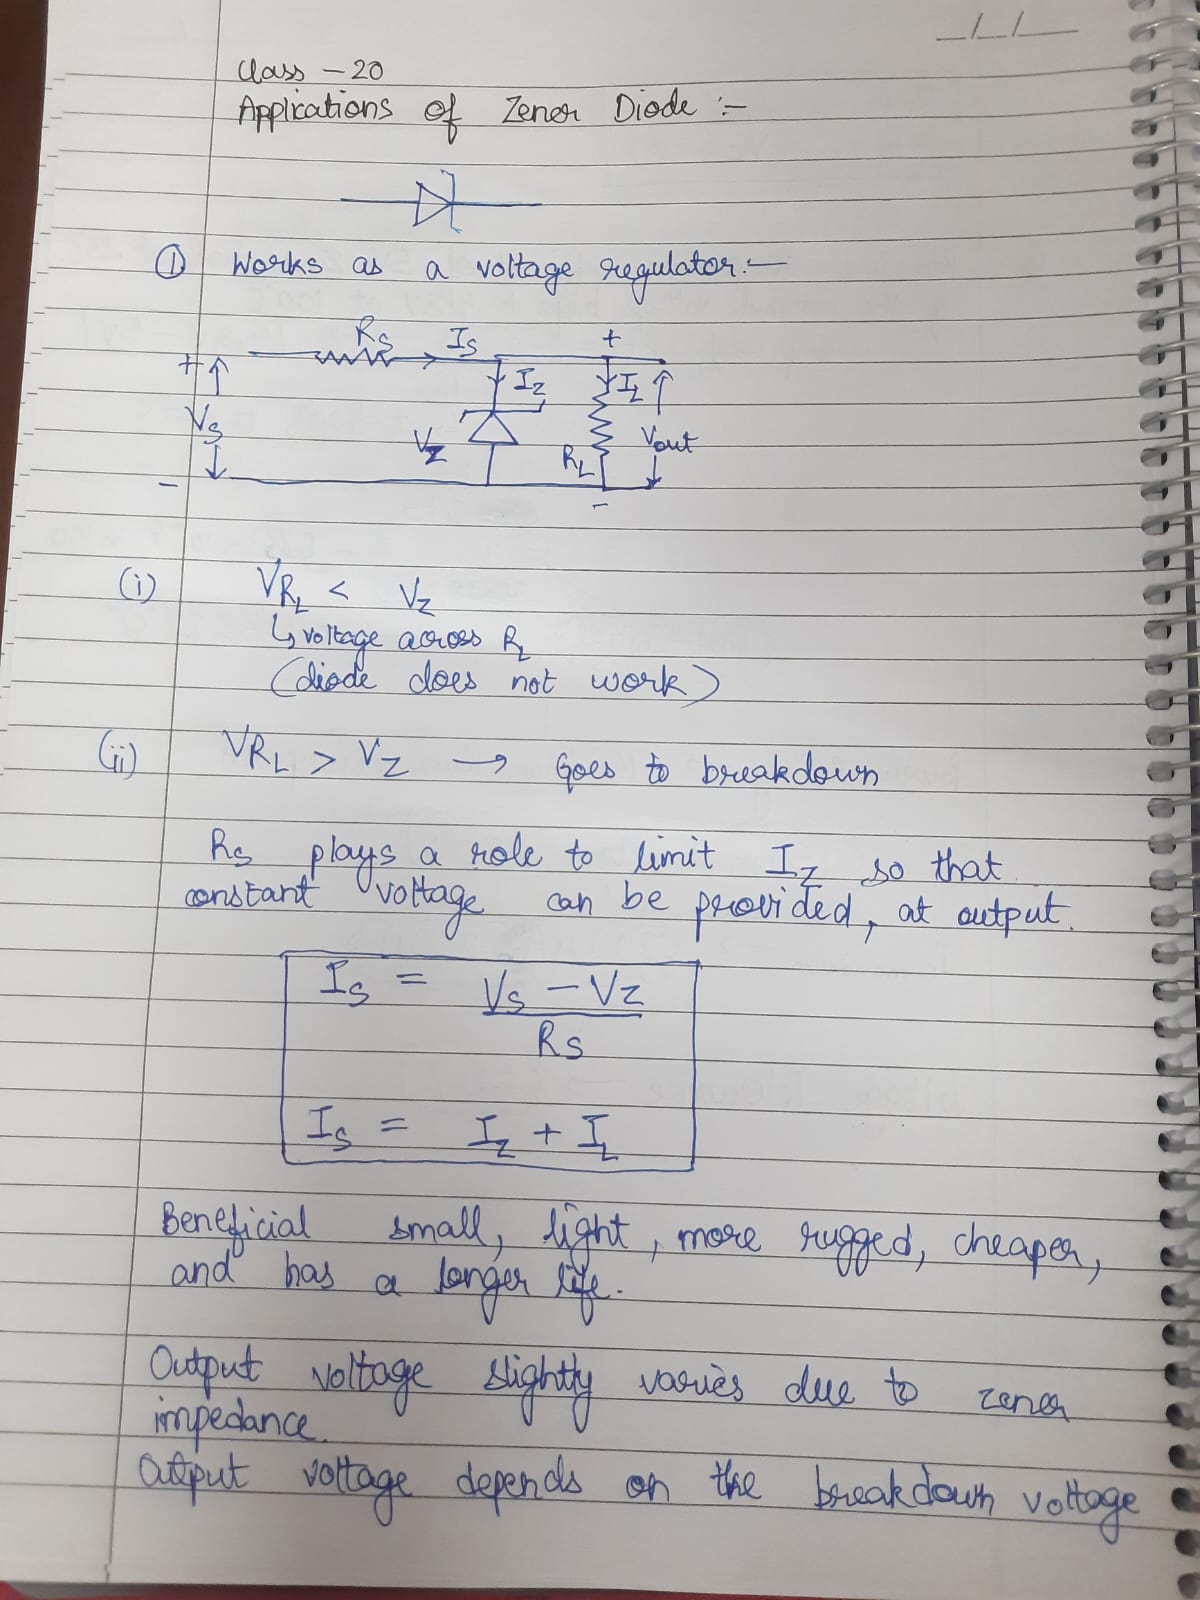 _/_/_
Class - 20
Applications of Zener Diode :-
① Works as a voltage regulator:-
Rs Is +
+ Iz IL
Vs Vz RL Vout
- -
(i) VRL < Vz
↳ voltage across RL
(diode does not work)
(ii) VRL > Vz → Goes to breakdown
Rs plays a role to limit Iz so that
constant voltage can be provided, at output.
Is = Vs - Vz
Rs
Is = Iz + IL
Beneficial small, light, more rugged, cheaper,
and has a longer life.
Output voltage slightly varies due to zener
impedance.
Output voltage depends on the breakdown voltage